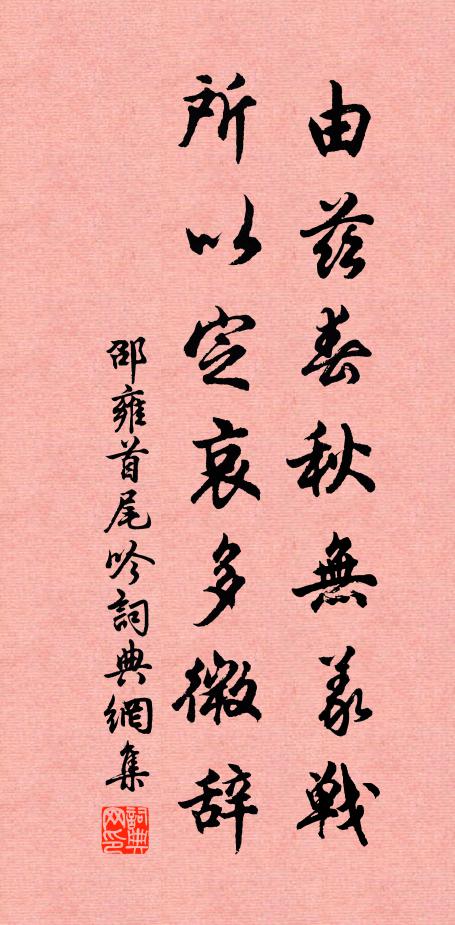 由茲春秋無義戰
所以定哀多微辭
邵雍首尾吟詞典網集
詞典网印